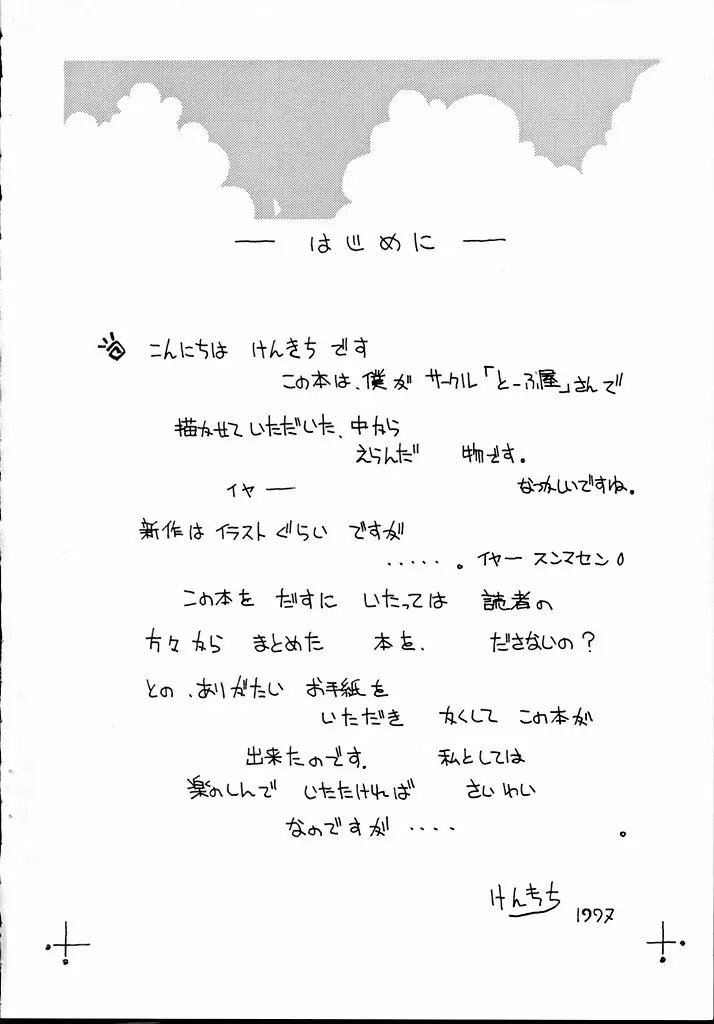 ― はじめに ―
こんにちは けんきち です
この本は、僕が サークル「とーふ屋」さんで
描かせていただいた、中から
えらんだ 物です。
イヤー なつかしいですね。
新作は イラストぐらい ですが
・・・・・。イヤー スンマセン
この本を だすに いたっては 読者の
方々から まとめた 本を、 ださないの?
との、ありがたい お手紙を
いただき かくして この本が
出来たのです。 私としては
楽のしんで いたたければ さいわい
なのですが ・・・・ 。
けんきち 1997